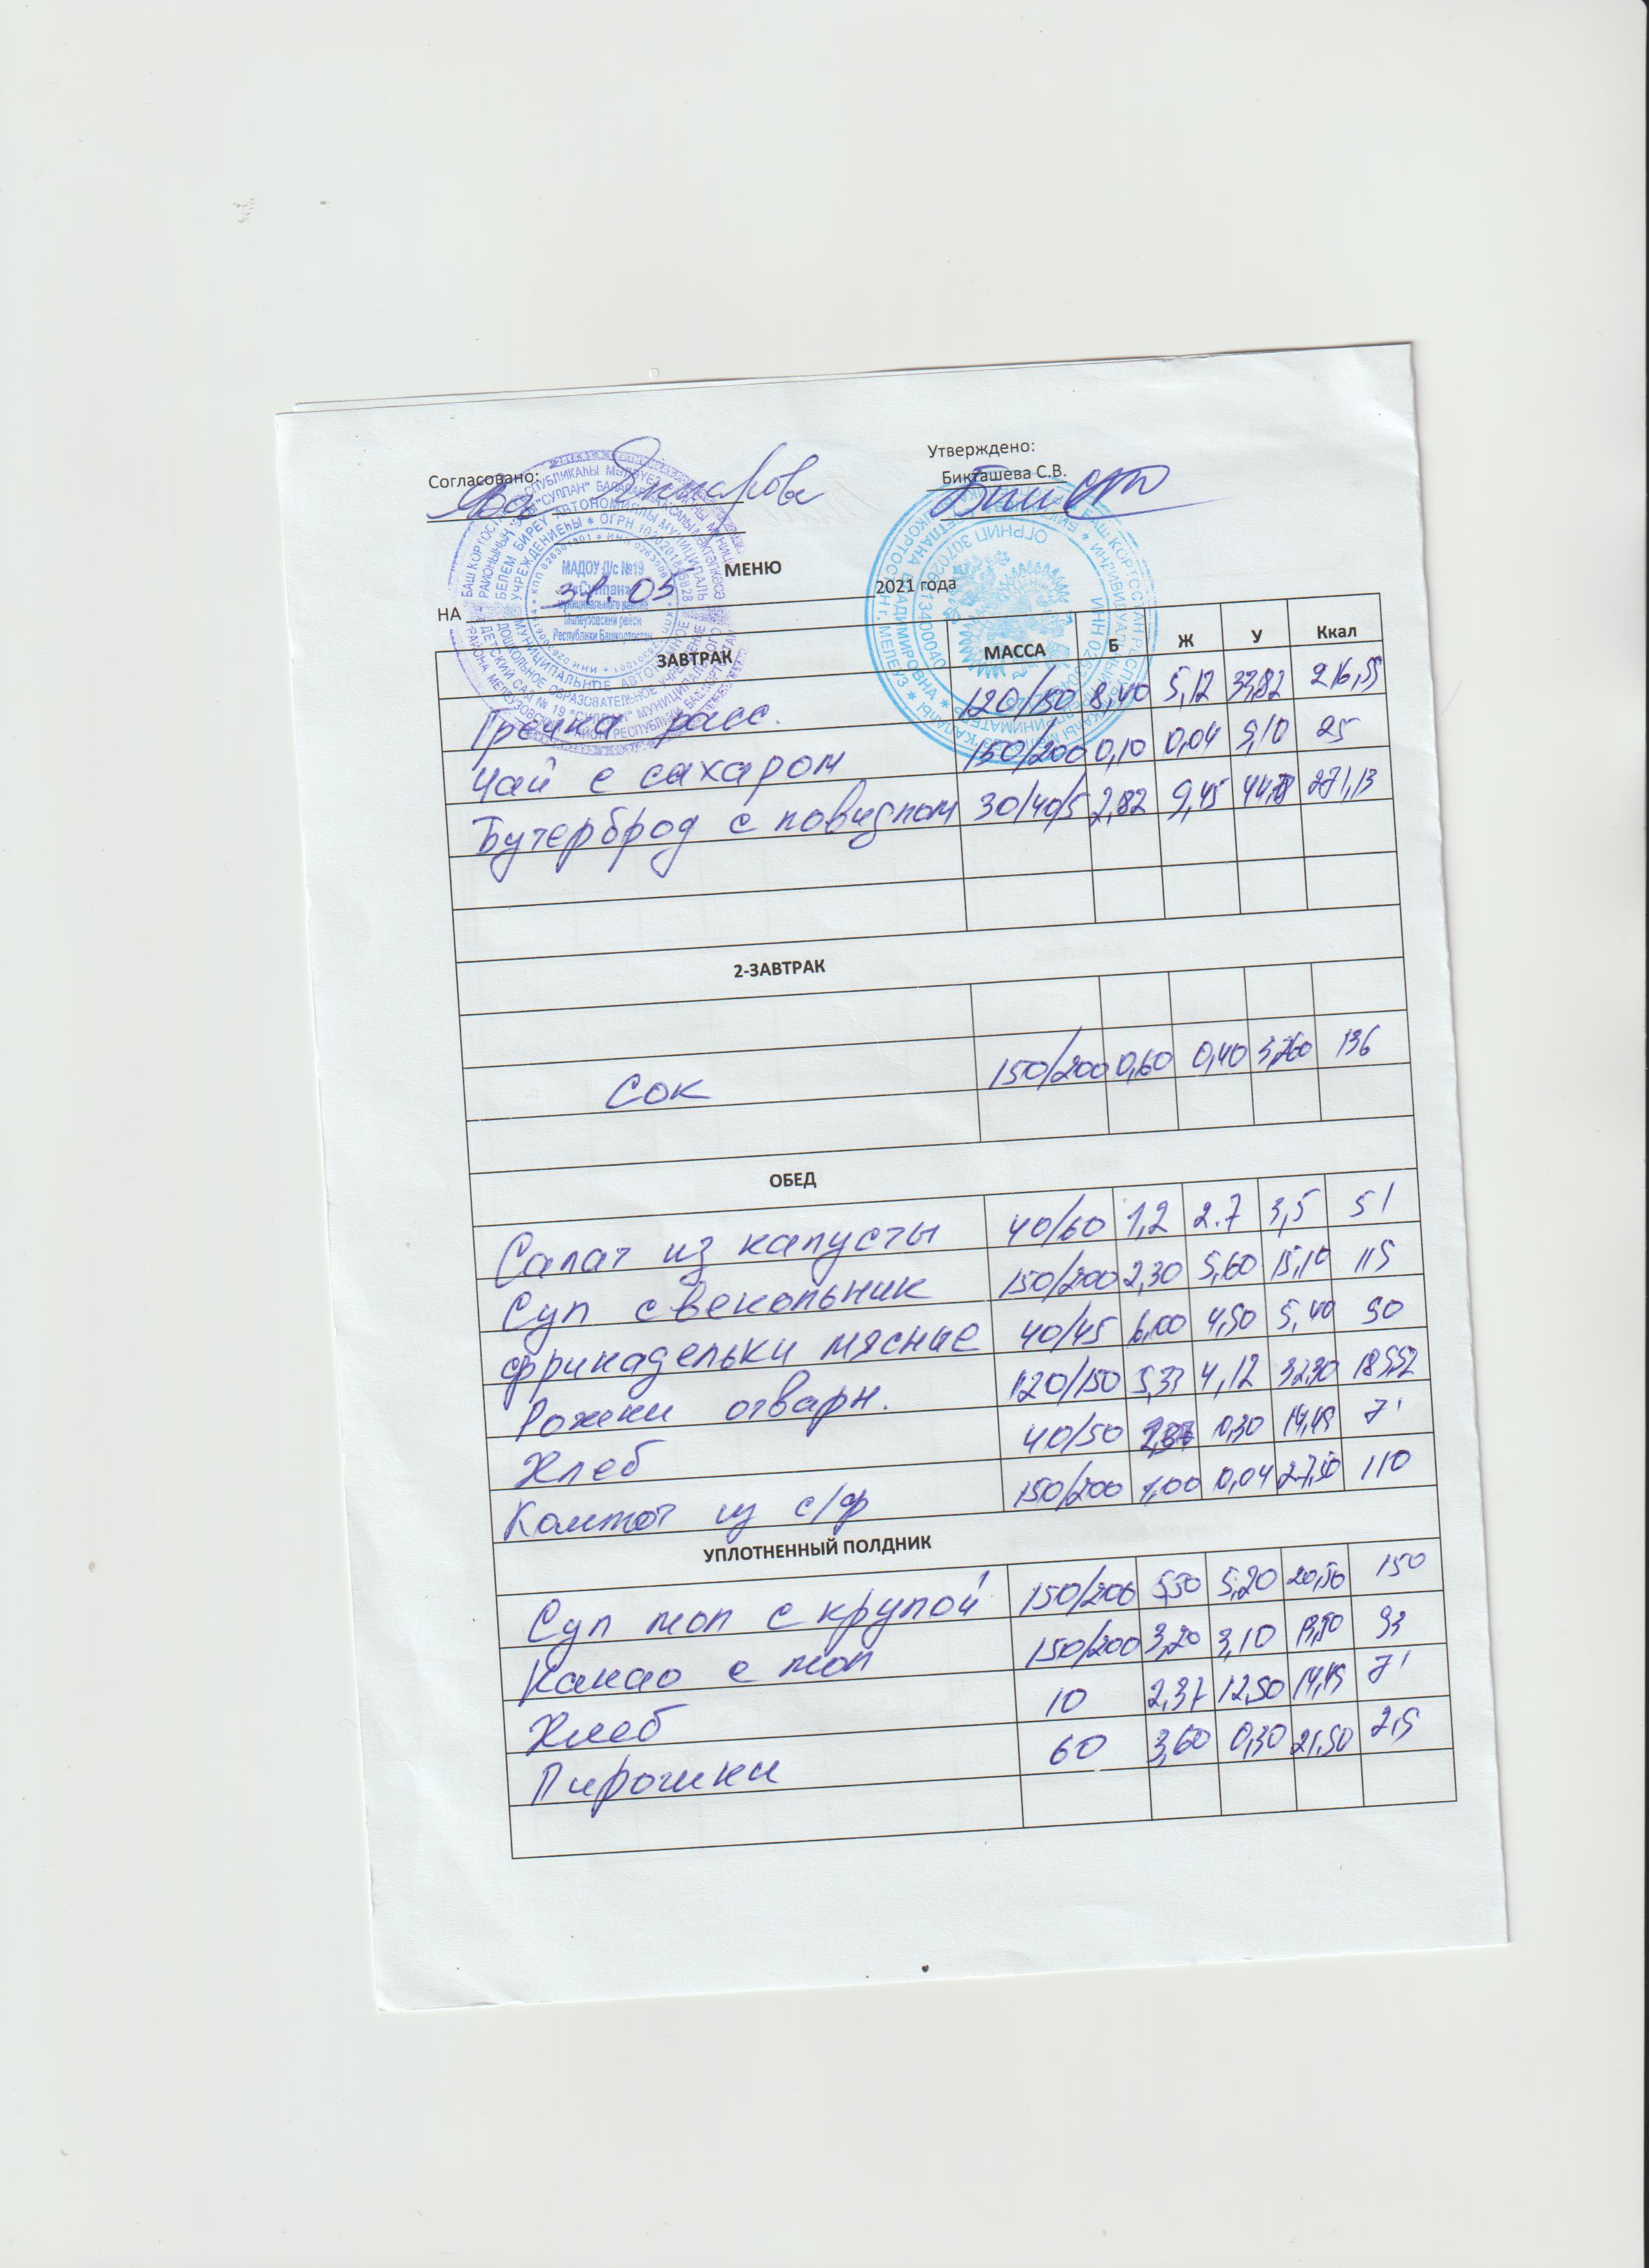 Согласовано:
Утверждено:
Бикташева С.В.
МАДОУ Д/с №19
«Сулпан»
муниципального района
Мелеузовский район
Республики Башкортостан
МЕНЮ
НА 31.05 2021 года
ЗАВТРАК МАССА Б Ж У Ккал
Гречка расс. 120/150 8,40 5,12 33,82 216,55
Чай с сахаром 150/200 0,10 0,04 9,10 25
Бутерброд с повидлом 30/40/5 2,82 9,45 271,13
2-ЗАВТРАК
Сок 150/200 0,60 0,40 136
ОБЕД
Салат из капусты 40/60 1,2 2.7 3,5 51
Суп свекольник 150/200 2,30 5,60 15,10 115
фрикадельки мясные 40/45 6,00 4,50 5,40 90
Рожки отварн. 120/150 5,33 4,12 32,30
Хлеб 40/50 0,30 14,49 71
Компот из с/ф 150/200 1,00 0,04 27,50 110
УПЛОТНЕННЫЙ ПОЛДНИК
Суп мол с крупой 150/200 5,50 5,20 20,50 150
Какао с мол 150/200 3,20 3,10 13,50 93
Хлеб 10 2,37 12,50 14,49 71
Пирожки 60 3,60 0,30 21,50